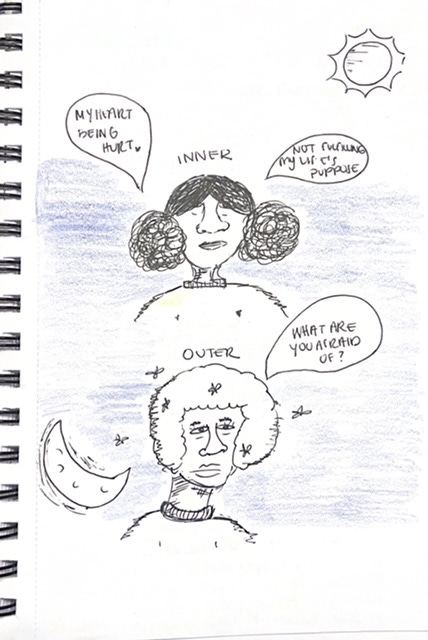 MY HEART
BEING
HURT
INNER
NOT FULFILLING
MY LIFE'S
PURPOSE
OUTER
WHAT ARE
YOU AFRAID
OF?